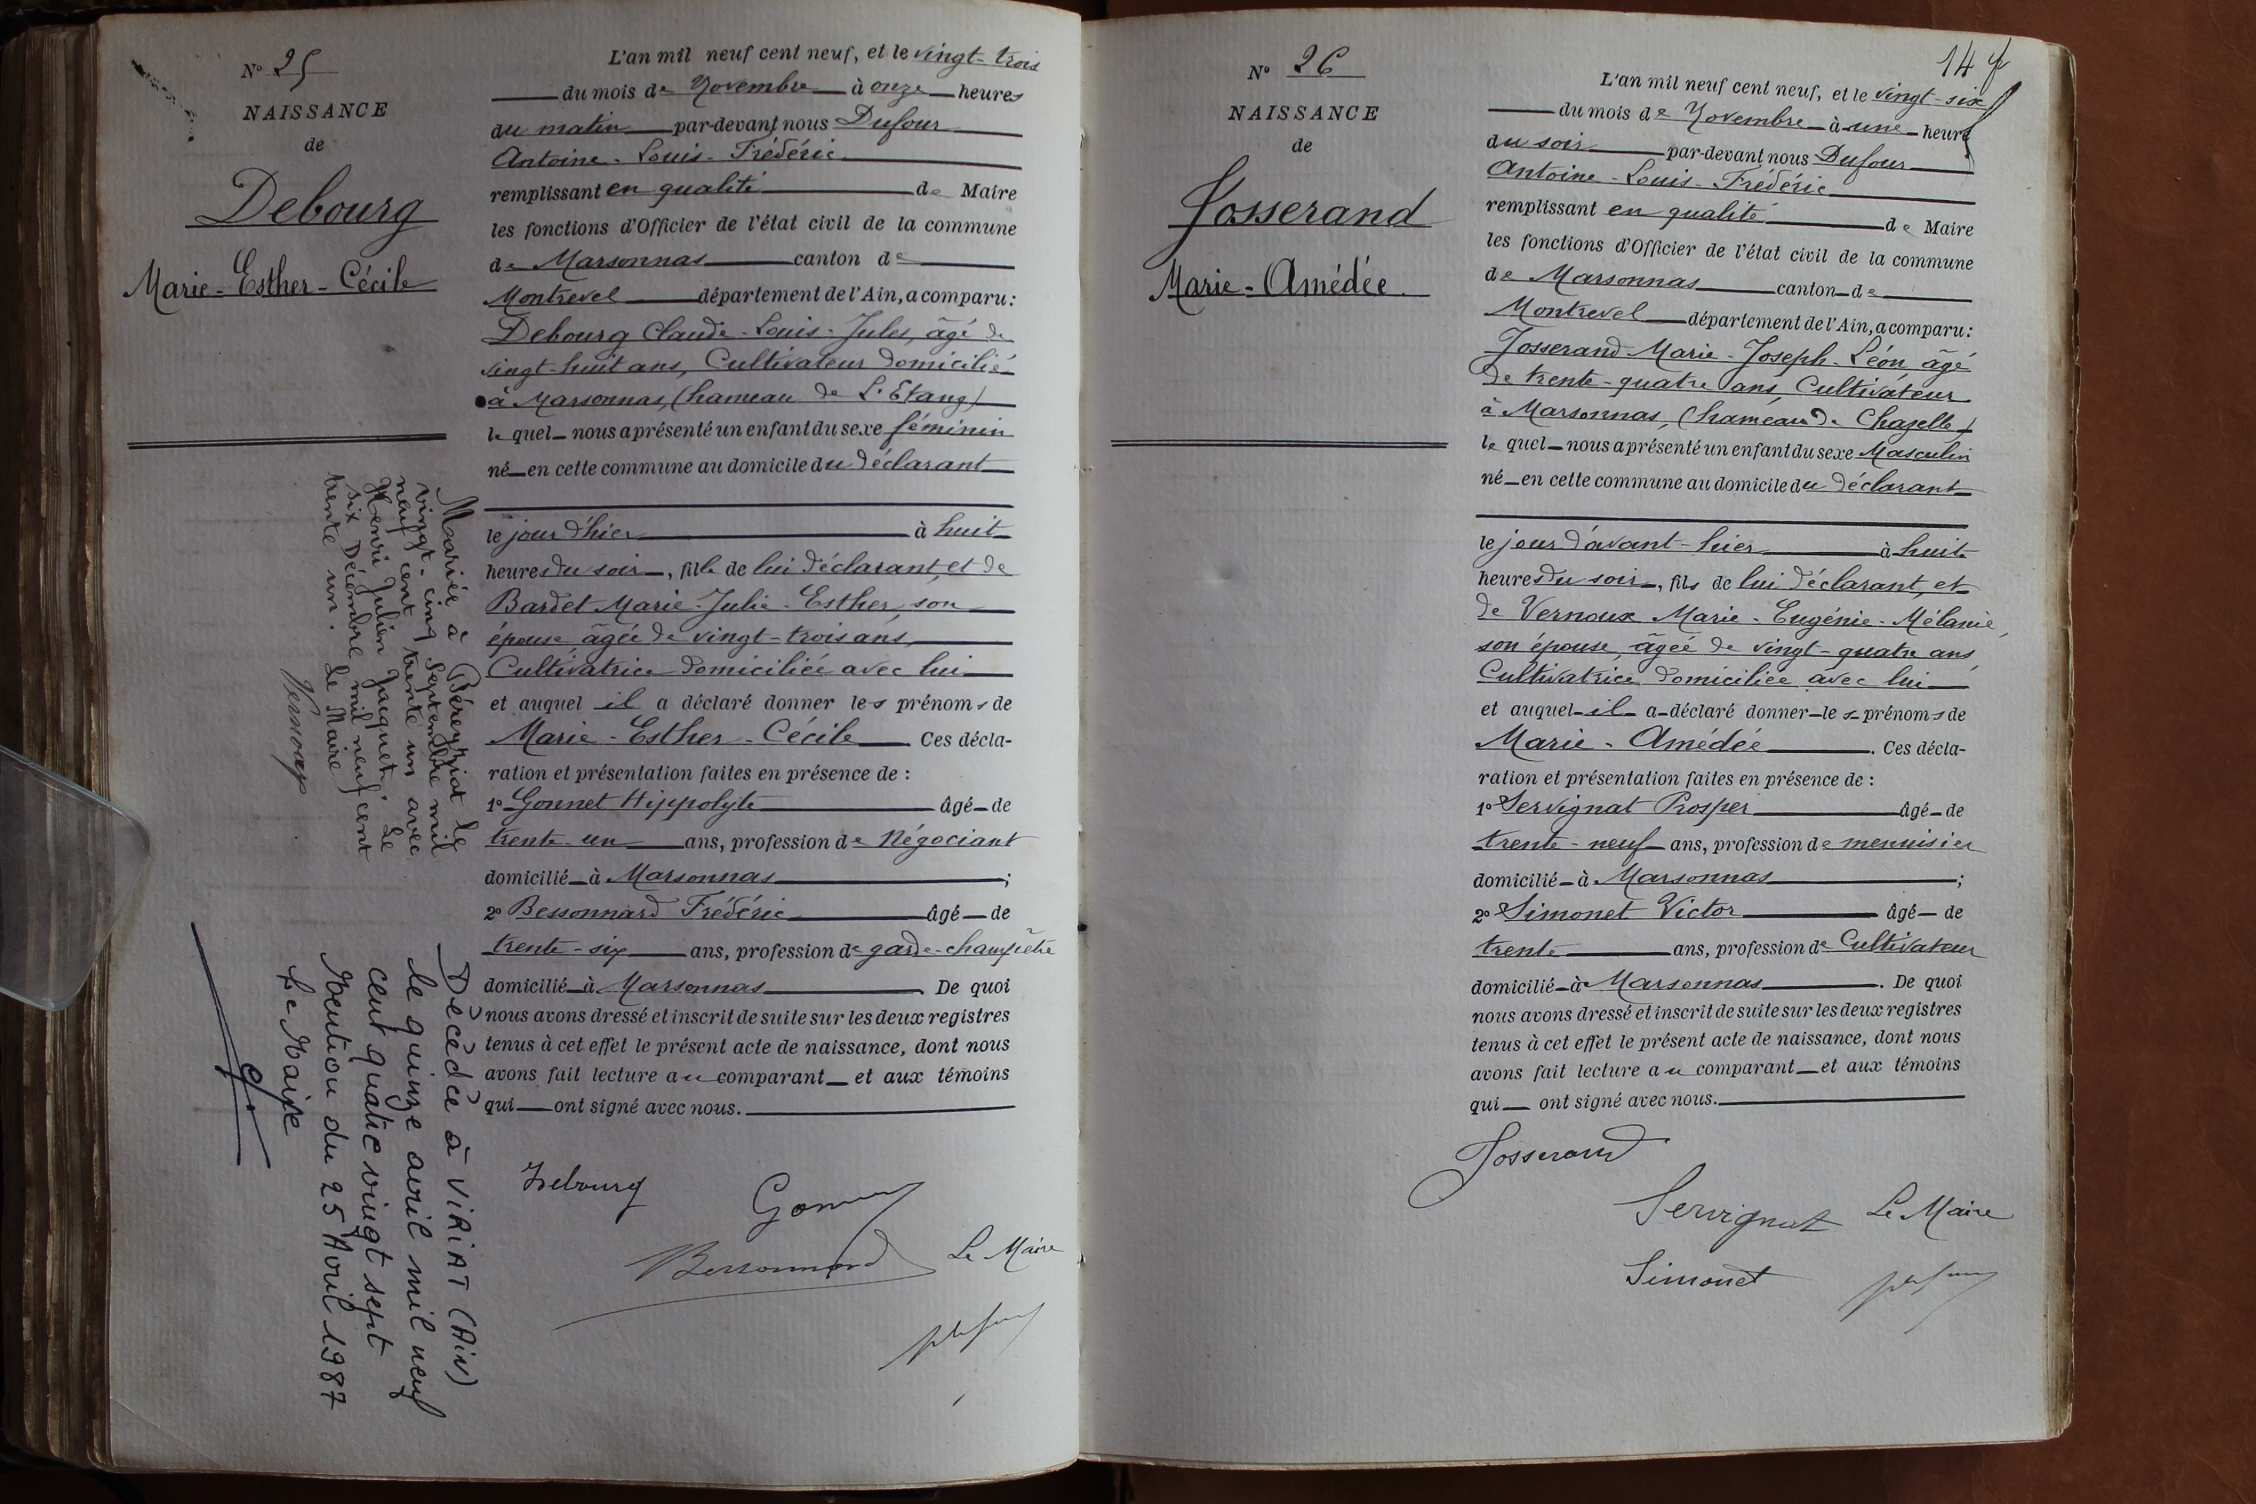 N° 25
NAISSANCE
de
Debourg
Marie-Esther-Cécile
L'an mil neuf cent neuf, et le vingt-trois
du mois de Novembre à onze heures
du matin par-devant nous Dufour
Antoine-Louis-Frédéric
remplissant en qualité de Maire
les fonctions d'Officier de l'état civil de la commune
de Marsonnas canton de
Montrevel département de l'Ain, a comparu :
Debourg Claude-Louis-Jules, âgé de
vingt-huit ans, Cultivateur domicilié
à Marsonnas, (hameau de L'Etang)
lequel nous a présenté un enfant du sexe féminin
né en cette commune au domicile du déclarant
le jour d'hier à huit
heures du soir, fille de lui déclarant, et de
Bardet Marie-Julie-Esther, son
épouse, âgée de vingt-trois ans,
Cultivatrice domiciliée avec lui
et auquel il a déclaré donner les prénoms de
Marie-Esther-Cécile. Ces décla-
ration et présentation faites en présence de :
1° Gonnet Hippolyte âgé de
trente-un ans, profession de Négociant
domicilié à Marsonnas ;
2° Bessonnard Frédéric âgé de
trente-six ans, profession de garde-champêtre
domicilié à Marsonnas. De quoi
nous avons dressé et inscrit de suite sur les deux registres
tenus à cet effet le présent acte de naissance, dont nous
avons fait lecture au comparant et aux témoins
qui ont signé avec nous.
Debourg
Gonnet
Bessonnard
Le Maire
Mariée à Béreyziat le
vingt-cinq Septembre mil
neuf cent trente un avec
Henri Julien Jacquet. Le
six Décembre mil neuf cent
trente un. Le Maire
Vernoux
Décédée à VIRIAT (Ain)
le quinze avril mil neuf
cent quatre vingt sept
Mention du 25 Avril 1987
Le Maire
14
N° 26
NAISSANCE
de
Josserand
Marie-Amédée
L'an mil neuf cent neuf, et le vingt-six
du mois de Novembre à une heure
du soir par-devant nous Dufour
Antoine-Louis-Frédéric
remplissant en qualité de Maire
les fonctions d'Officier de l'état civil de la commune
de Marsonnas canton de
Montrevel département de l'Ain, a comparu :
Josserand Marie-Joseph-Léon, âgé
de trente-quatre ans, Cultivateur
à Marsonnas, (hameau de Chazelle)
lequel nous a présenté un enfant du sexe Masculin
né en cette commune au domicile du déclarant
le jour d'avant-hier à huit
heures du soir, fils de lui déclarant, et
de Vernoux Marie-Eugénie-Mélanie,
son épouse, âgée de vingt-quatre ans,
Cultivatrice domiciliée avec lui
et auquel il a déclaré donner les prénoms de
Marie-Amédée. Ces décla-
ration et présentation faites en présence de :
1° Servignat Prosper âgé de
trente-neuf ans, profession de menuisier
domicilié à Marsonnas ;
2° Simonet Victor âgé de
trente ans, profession de Cultivateur
domicilié à Marsonnas. De quoi
nous avons dressé et inscrit de suite sur les deux registres
tenus à cet effet le présent acte de naissance, dont nous
avons fait lecture au comparant et aux témoins
qui ont signé avec nous.
Josserand
Servignat
Le Maire
Simonet